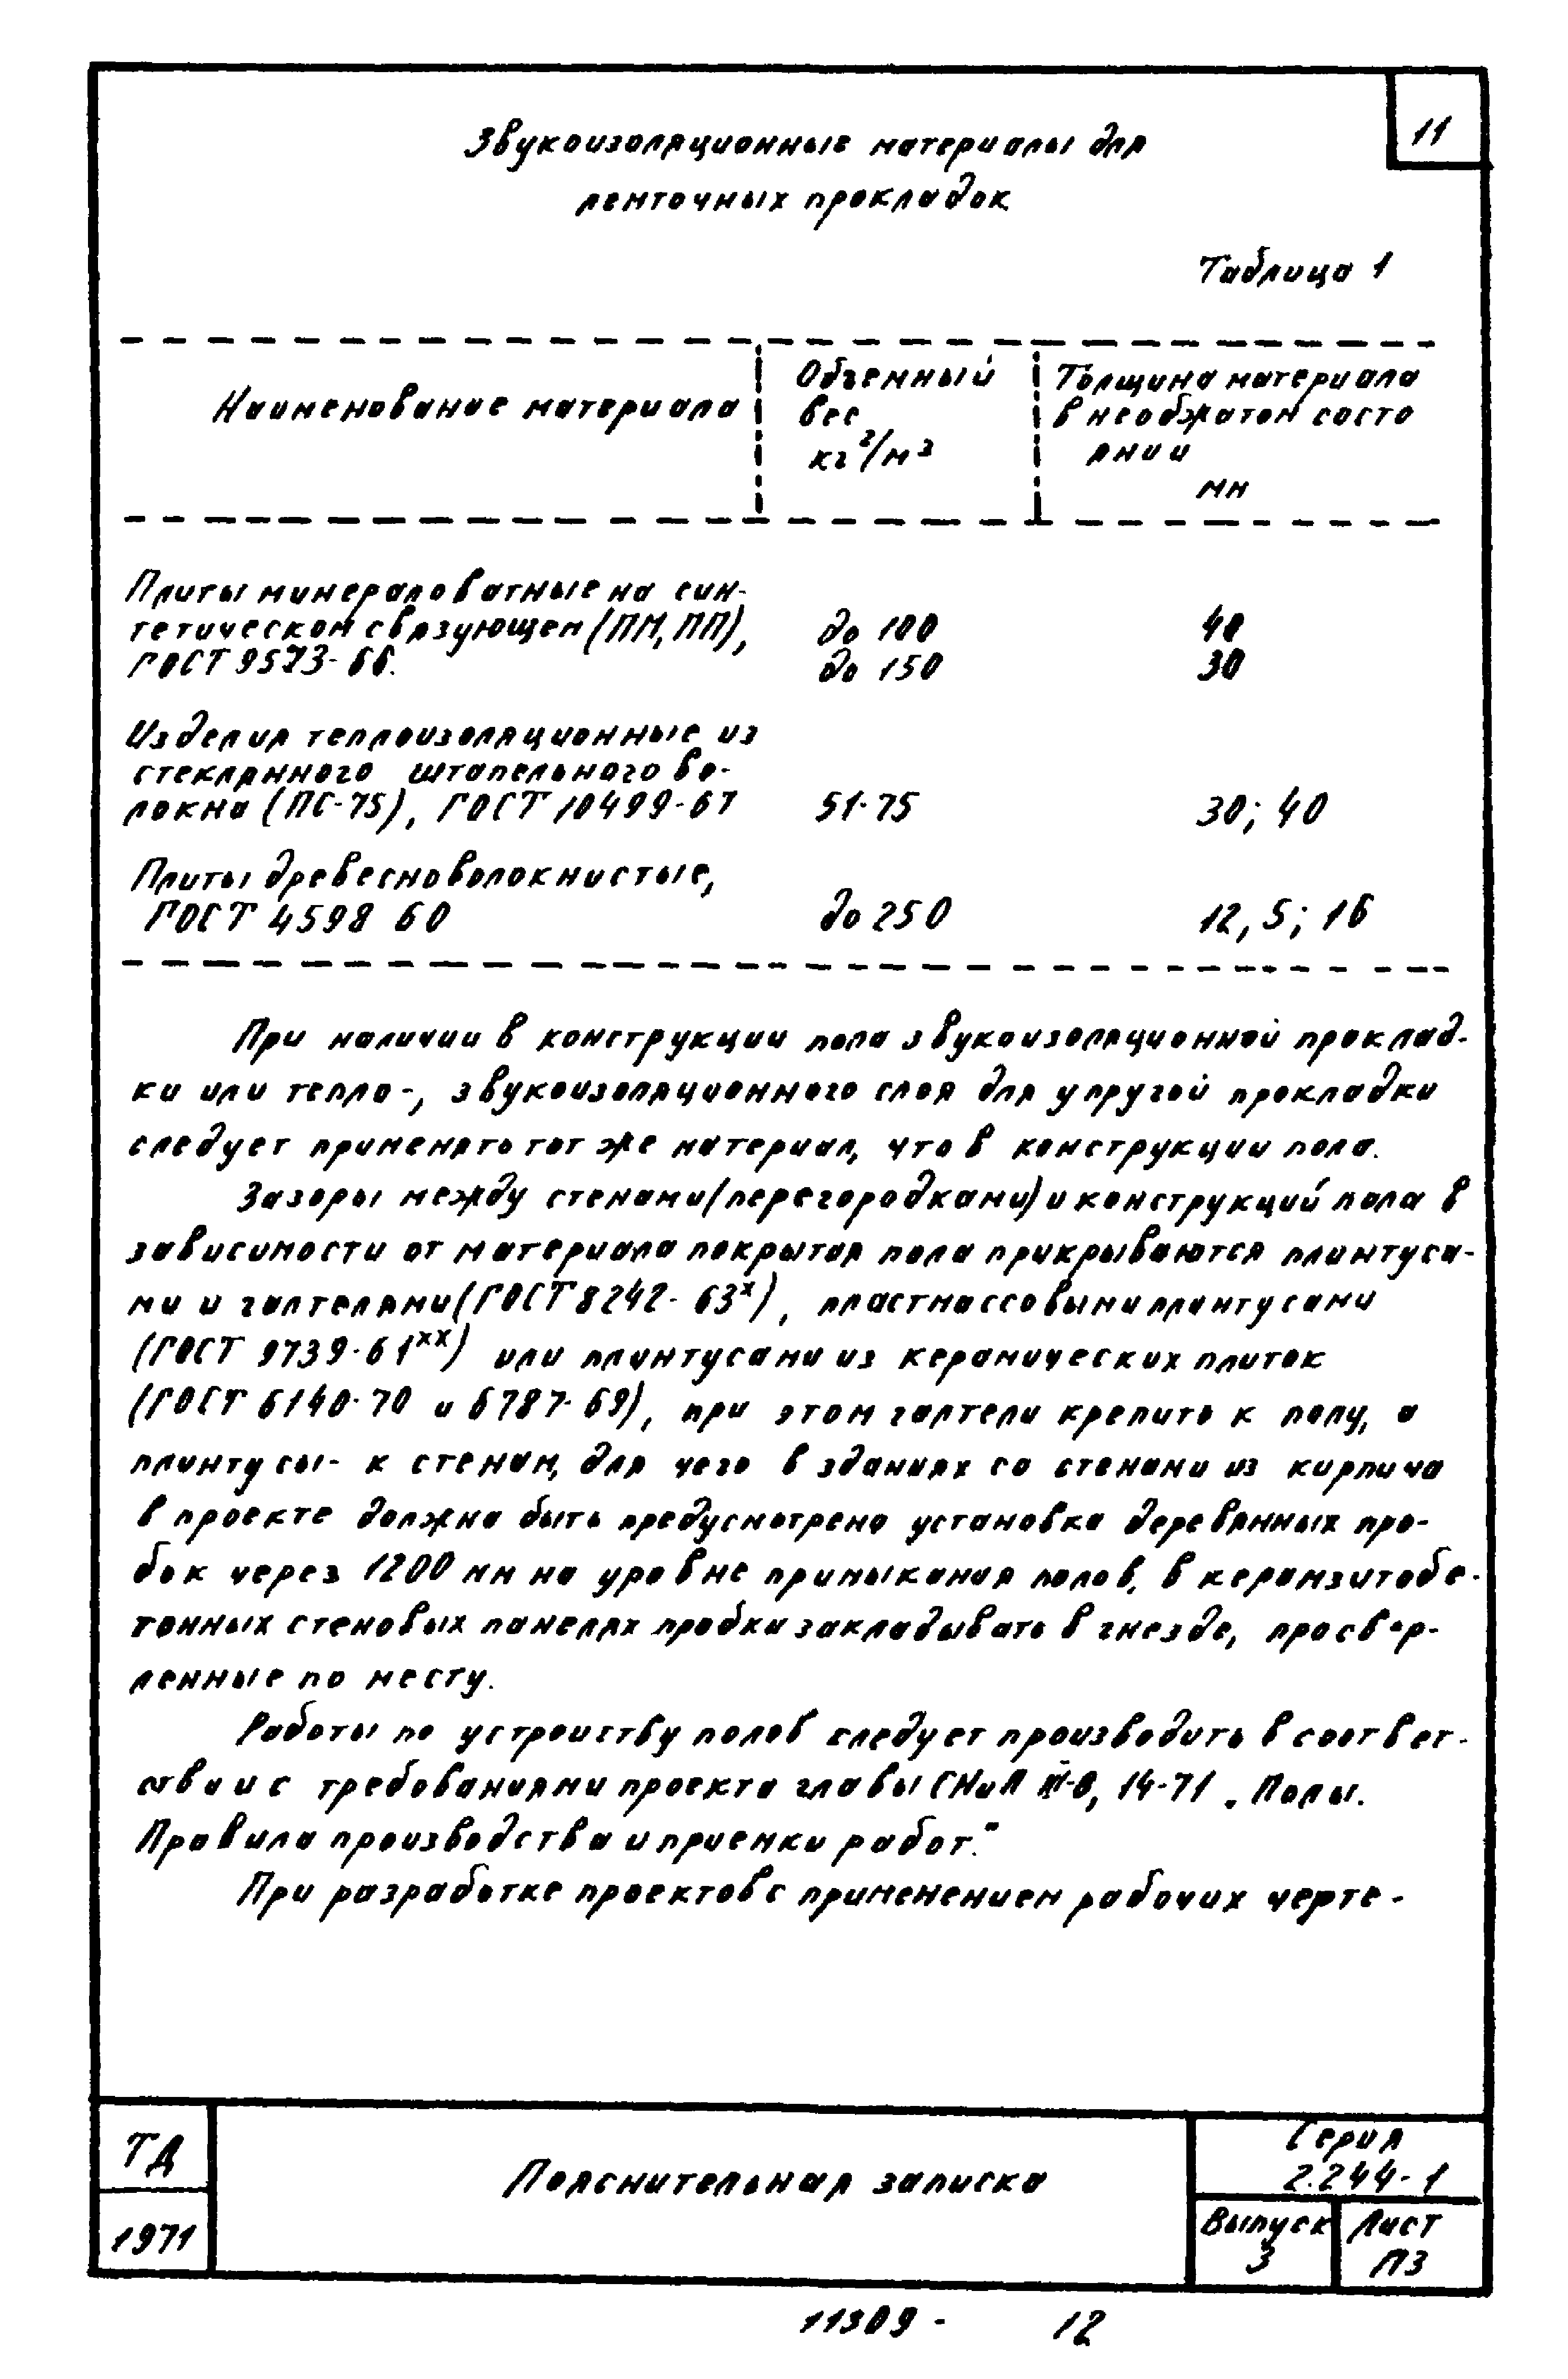 11
Звукоизоляционные материалы для
ленточных прокладок
Таблица 1
Наименование материала
Объемный
вес
кг²/м³
Толщина материала
в необжатом состо
янии
мм
Плиты минераловатные на син-
тетическом связующем (ПМ, ПП),
до 100
40
ГОСТ 9573-66.
до 150
30
Изделия теплоизоляционные из
стеклянного штапельного во-
локна (ПС-75), ГОСТ 10499-67
51-75
30; 40
Плиты древесноволокнистые,
ГОСТ 4598 60
до 250
12,5; 16
При наличии в конструкции пола звукоизоляционной проклад-
ки или тепло-, звукоизоляционного слоя для упругой прокладки
следует применять тот же материал, что в конструкции пола.
Зазоры между стенами (перегородками) и конструкций пола в
зависимости от материала покрытая пола прикрываются плинтуса-
ми и галтелями (ГОСТ 8242-63ˣ), пластмассовыми плинтусами
(ГОСТ 9739-61ˣˣ) или плинтусами из керамических плиток
(ГОСТ 6140-70 и 6787-69), при этом галтели крепить к полу, а
плинтусы- к стенам, для чего в зданиях со стенами из кирпича
в проекте должна быть предусмотрена установка деревянных про-
бок через 1200 мм на уровне примыкания полов, в керамзитобе-
тонных стеновых панелях пробки закладывать в гнезде, просвер-
ленные по месту.
Работы по устроиству полов следует производить в соответ-
ствии с требованиями проекта главы СНиП III-В, 14-71 „Полы.
Правила производства и приемки работ."
При разработке проектов с применением рабочих черте-
ТД
1971
Пояснительная записка
Серия
2.244-1
Выпуск
3
Лист
ПЗ
11309- 12